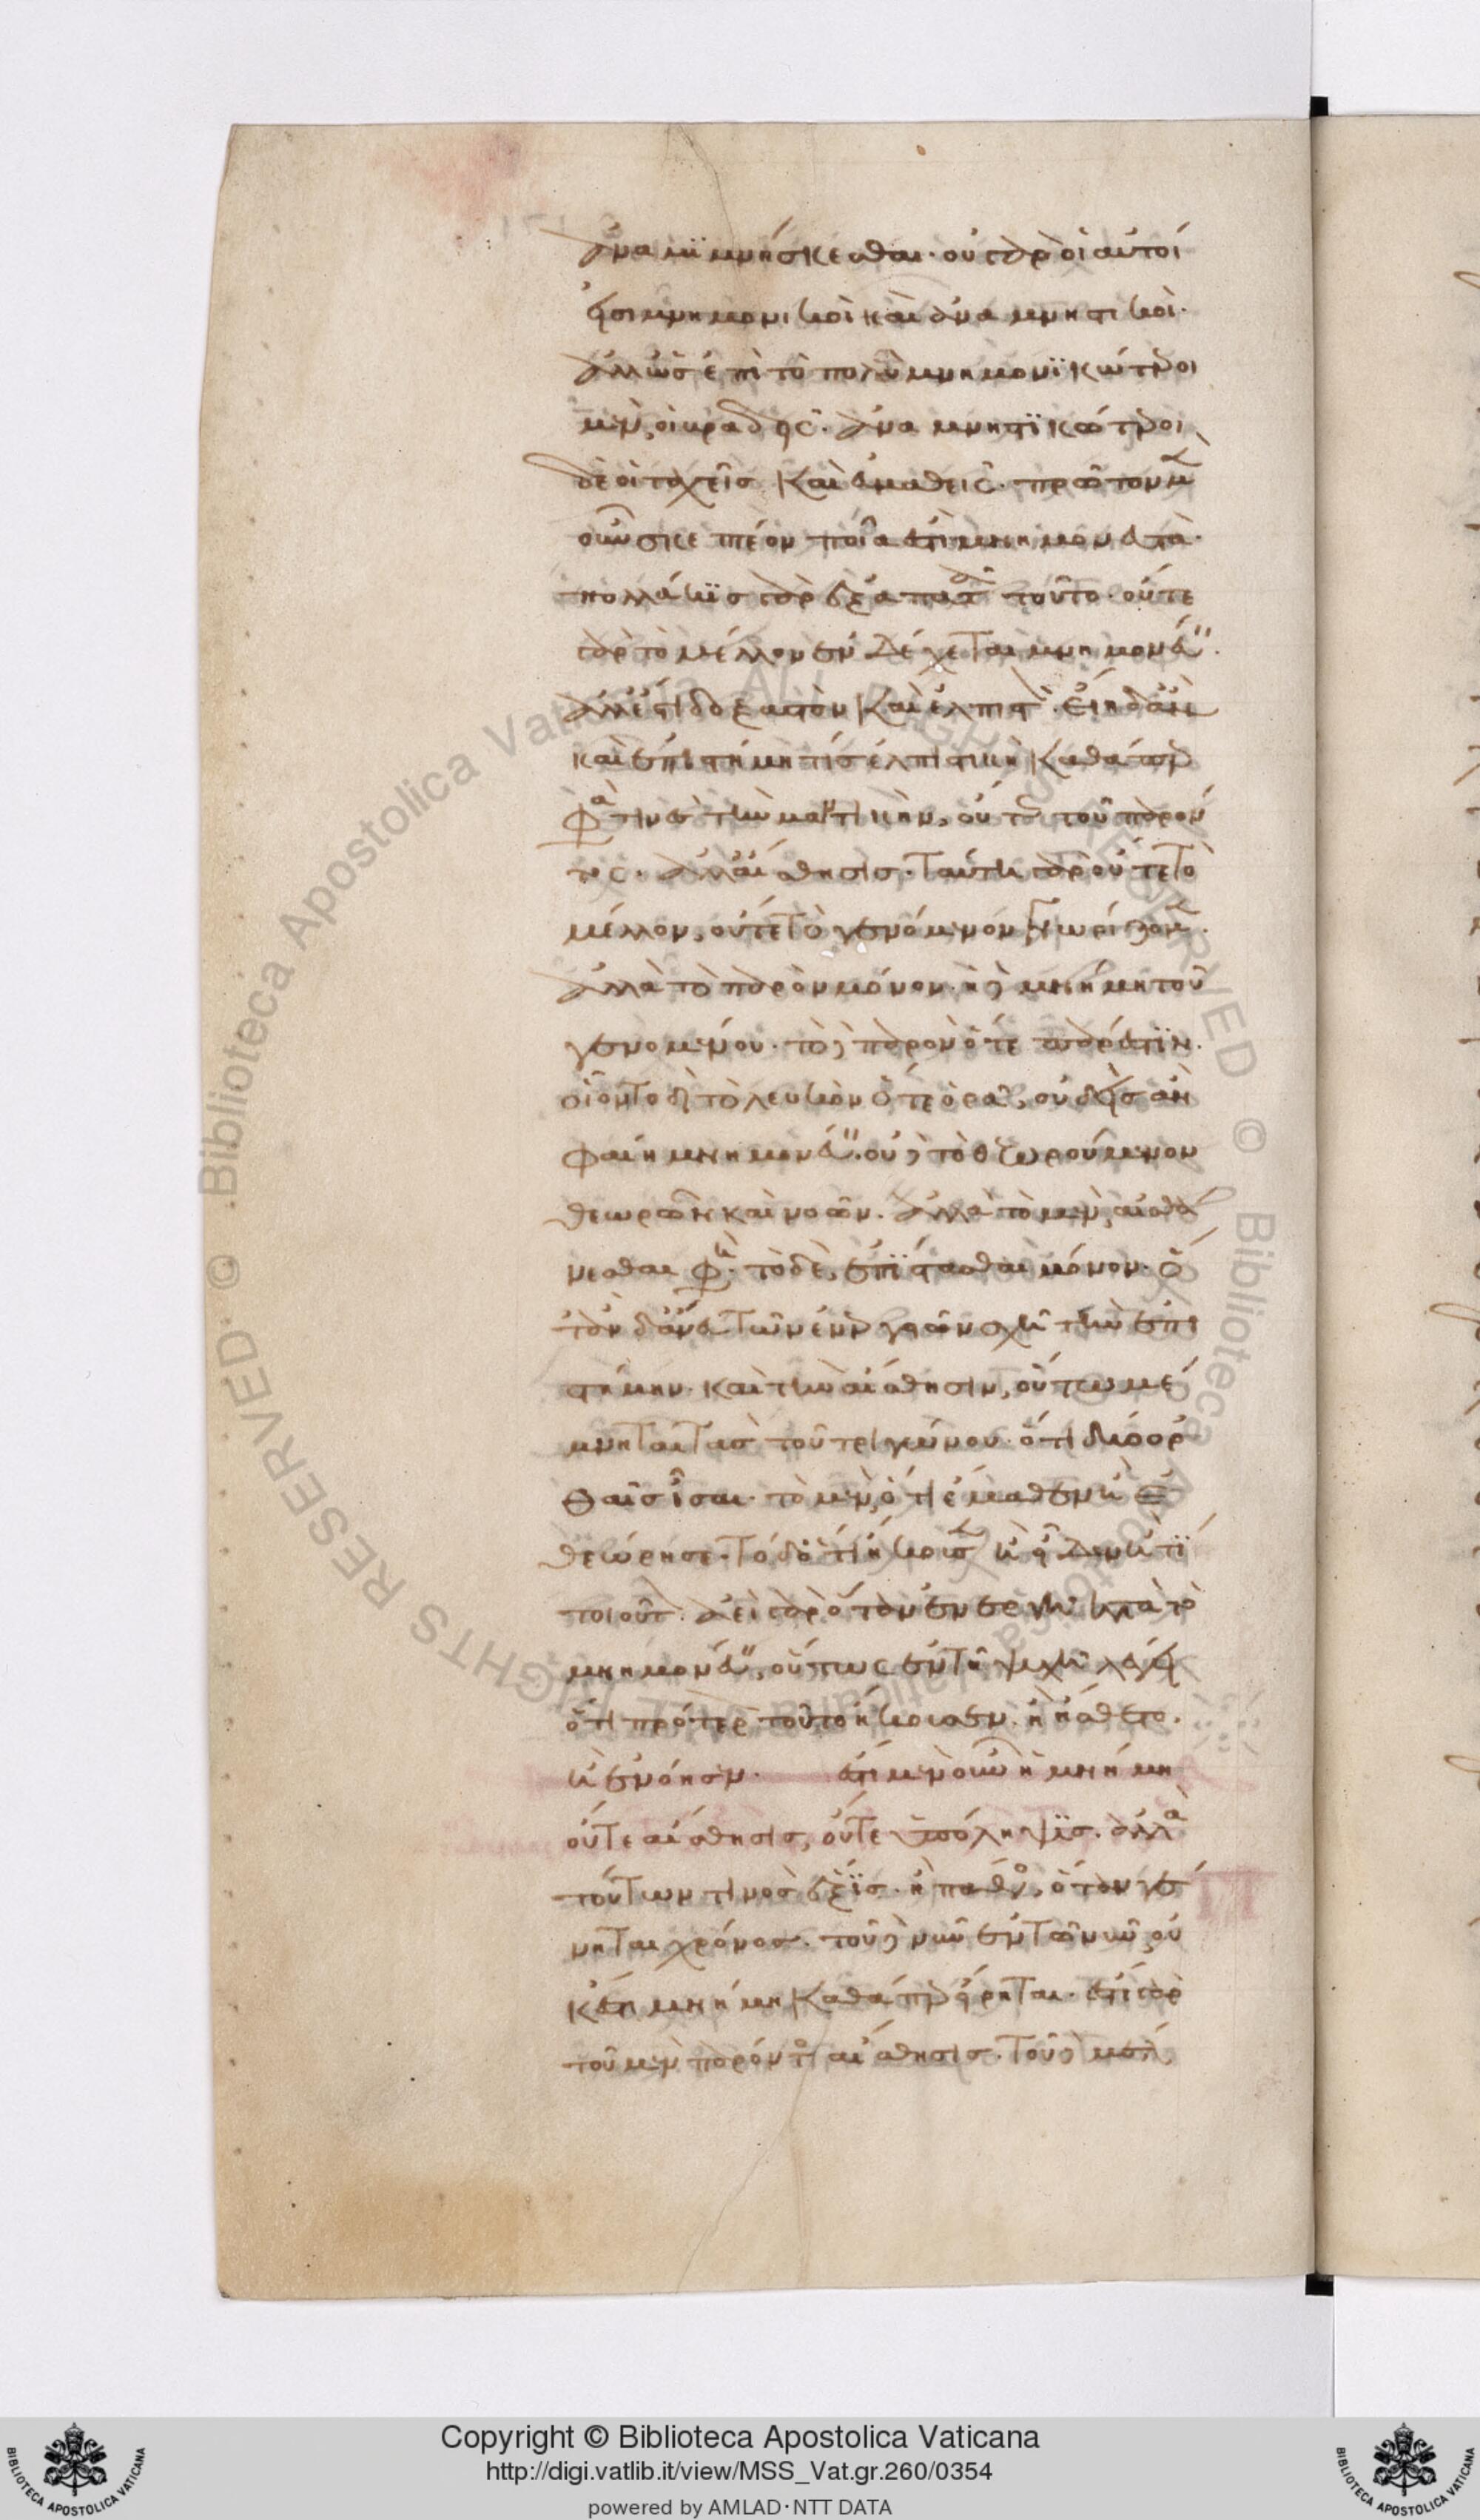 ἀναμιμνήσκεσθαι· οὐ γὰρ οἱ αὐτοί
εἰσι μνημονικοὶ καὶ ἀναμνηστικοὶ·
ἀλλ' ὡς ἐπὶ τὸ πολὺ μνημονϊκώτεροι
μὲν, οἱ βραδεῖς· ἀναμνηστϊκώτεροι
δὲ οἱ ταχεῖς καὶ εὐμαθεῖς· πρῶτον μὲν
οὖν σκεπτέον ποῖά ἐστι μνημονευτὰ·
πολλάκϊς γὰρ ἐξαπατᾶ τοῦτο· οὔτε
γὰρ τὸ μέλλον ἐνδέχεται μνημονεύειν·
ἀλλ' ἔστι δοξαστὸν καὶ ἐλπιστὸν· εἴη δ' ἂν
καὶ ἐπιστήμη τίς ἐλπιστικὴ καθάπερ
φασί τινες τὴν μαντικὴν, οὔτε τοῦ παρόν
τος· ἀλλ' αἴσθησις· ταύτη γὰρ οὔτε τὸ
μέλλον, οὔτε τὸ γενόμενον γνωρίζομεν·
ἀλλὰ τὸ παρὸν μόνον· ἡ δὲ μνήμη τοῦ
γενομένου· τὸ δὲ παρὸν ὅτε πάρεστϊν·
οἷον τοδὶ τὸ λευκὸν ὅτε ὁρᾶ, οὐδεὶς ἂν
φαίη μνημονεύειν· οὐδὲ τὸ θεωρούμενον
θεωρῶν καὶ νοῶν· ἀλλὰ τὸ μὲν, αἰσθά
νεσθαι φησὶ· τὸ δὲ, ἐπίστασθαι μόνον· ὅ
ταν δ' ἄνευ τῶν ἐνεργειῶν σχῆ τὴν ἐπι
στήμην· καὶ τὴν αἴσθησιν, οὕτω μέ
μνηται τὰς τοῦ τριγώνου· ὅτι δύο ὀρ
θαῖς ἴσαι· τὸ μὲν, ὅτι ἔμαθεν ἢ ἐ
θεώρησε· τὸ δὲ ὅτι ἤκουσεν ἢ εἶδεν ἤ τϊ
τοιοῦτον· ἀεὶ γὰρ ὅταν ἐνεργῆ κατὰ τὸ
μνημονεύειν, οὕτως ἐν τῆ ψυχῆ λέγει
ὅτι πρότερον τοῦτο ἤκουσεν· ἢ ἤσθετο·
ἢ ἐνόησεν· ἔστι μὲν οὖν ἡ μνήμη
οὔτε αἴσθησις, οὔτε ὑπόληψϊς· ἀλλὰ
τούτων τινὸς ἕξϊς· ἢ πάθος, ὅταν γέ
νηται χρόνος· τοῦ δὲ νῦν ἐν τῶ νῦν οὐ
κ ἔστι μνήμη καθάπερ εἴρηται· ἔστι γὰρ
τοῦ μὲν παρόντος αἴσθησις· τοῦ δὲ μέλ
Copyright © Biblioteca Apostolica Vaticana
http://digi.vatlib.it/view/MSS_Vat.gr.260/0354
powered by AMLAD·NTT DATA